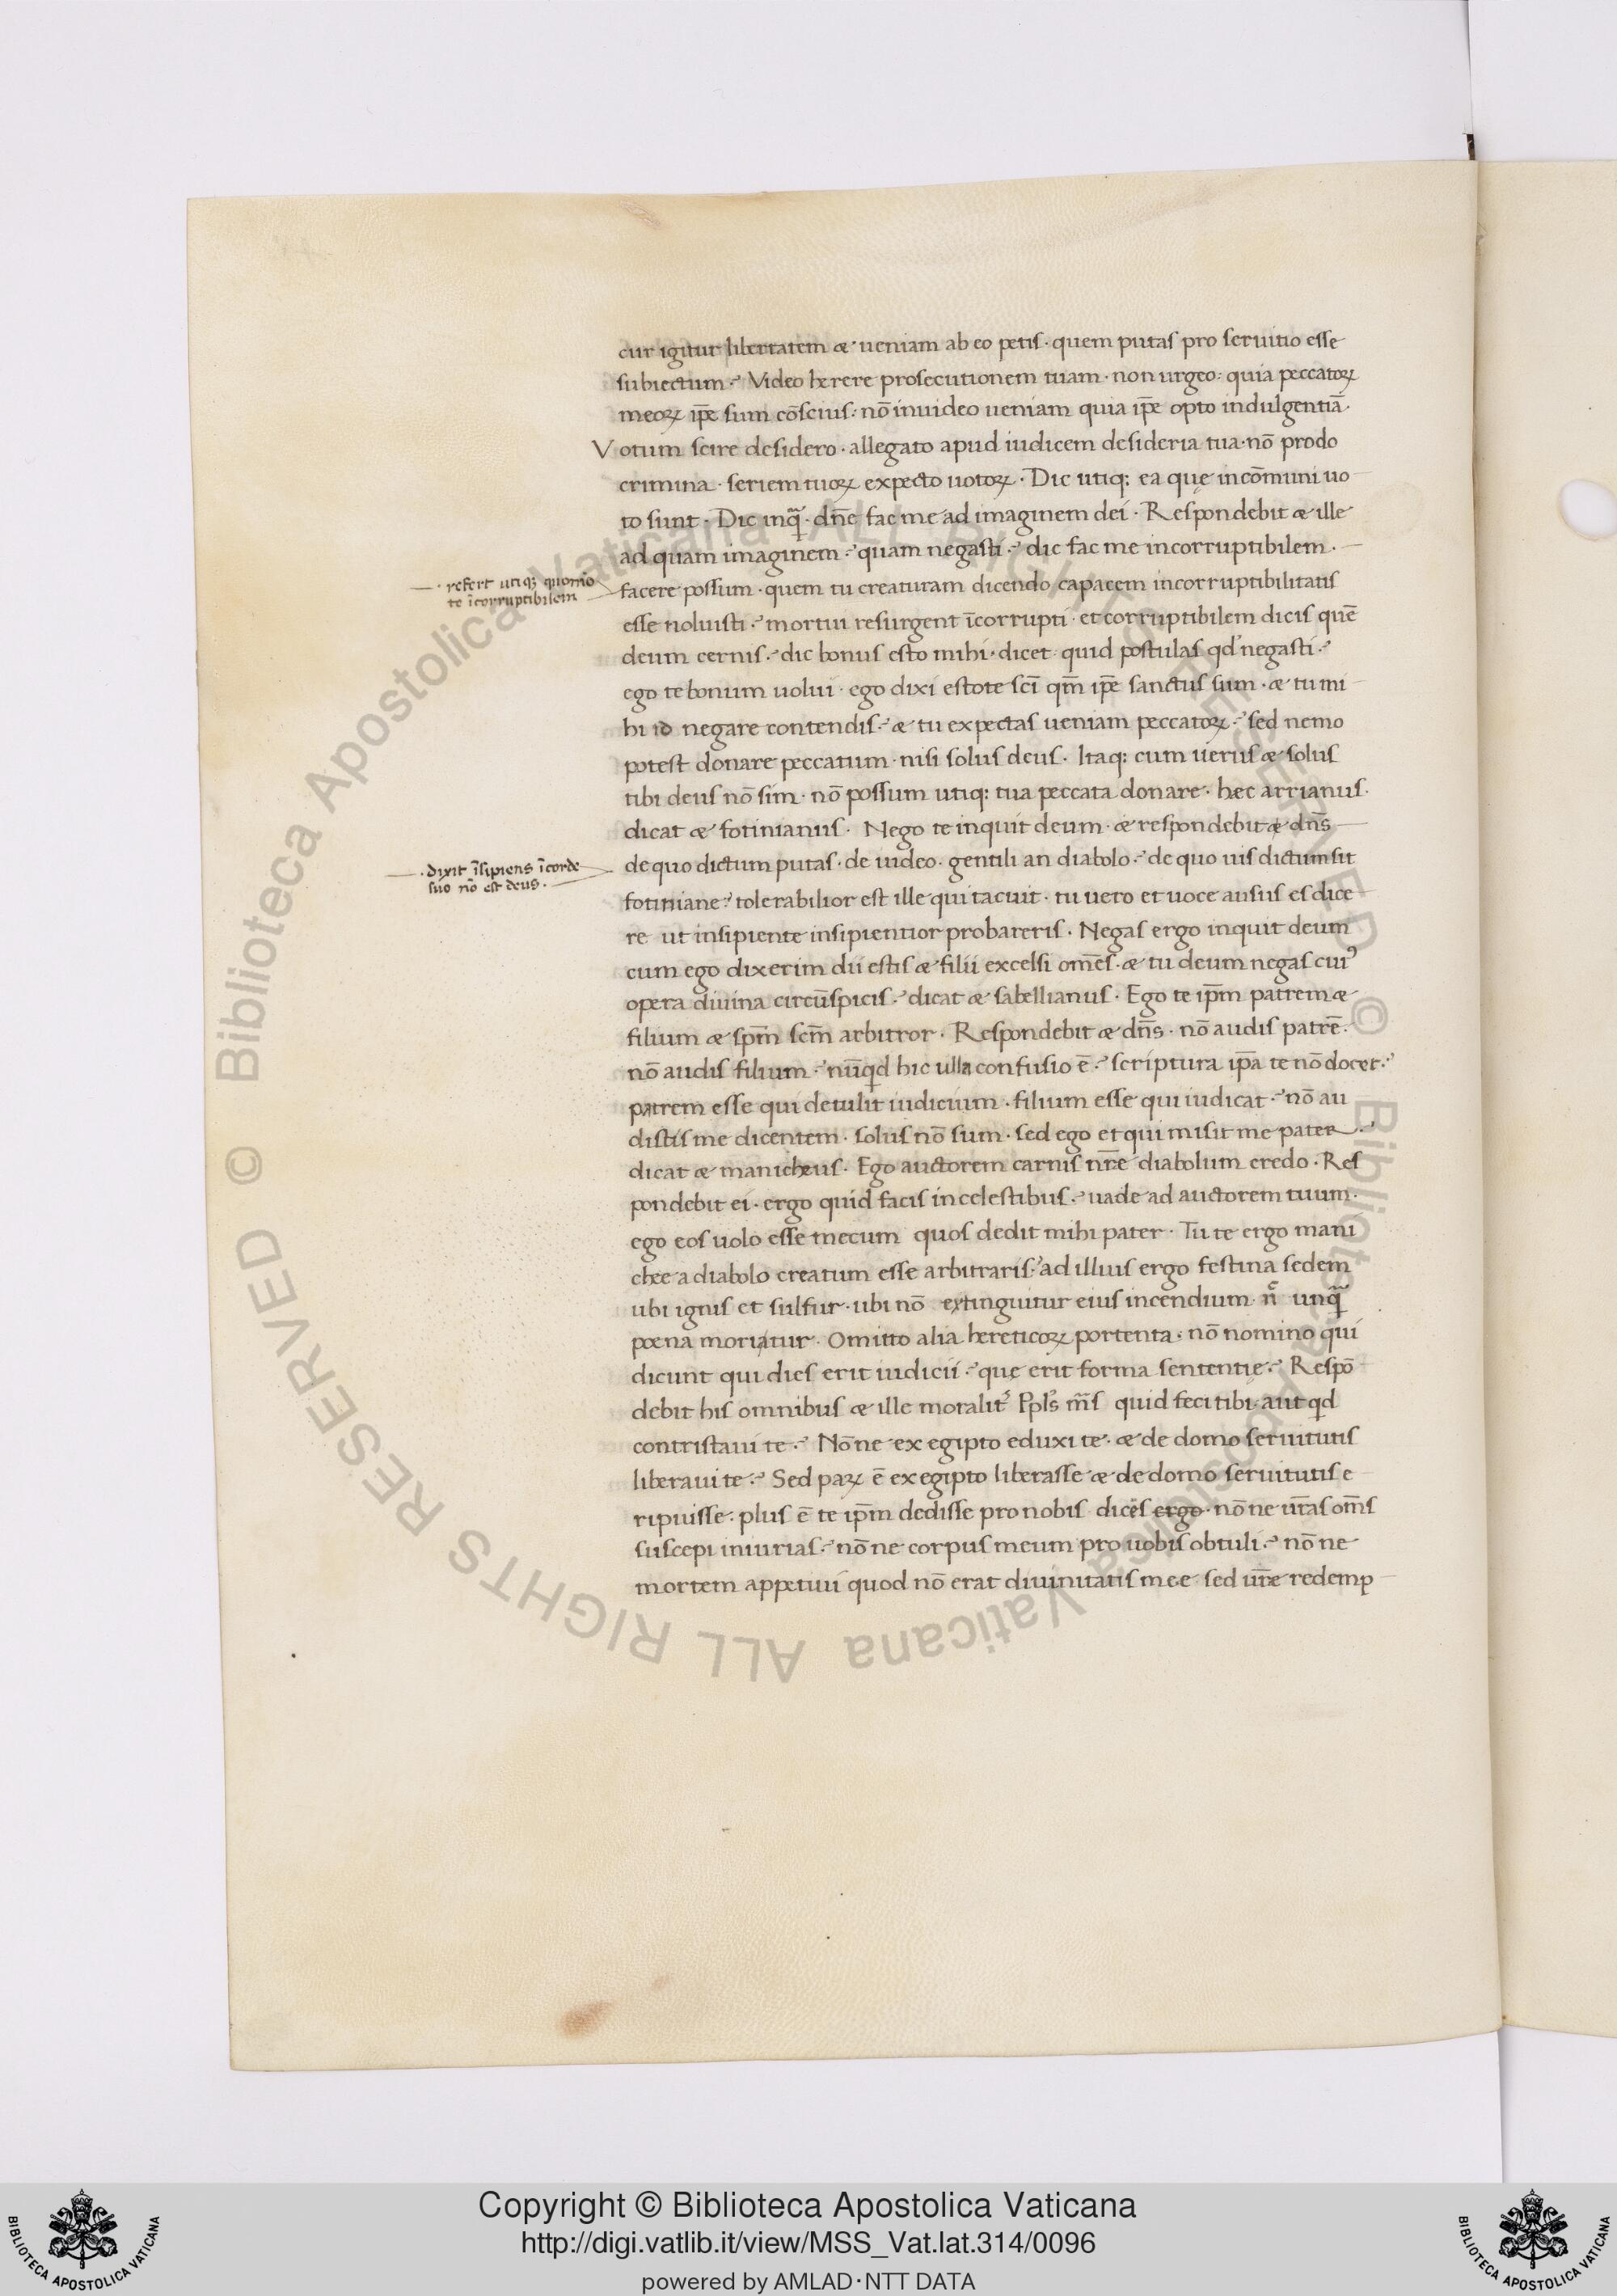 cur igitur libertatem æ ueniam ab eo petis · quem putas pro seruitio esse
subiectum · Video herere prosecutionem tuam · non urgeo : quia peccatoꝝ
meoꝝ ip̄e sum cōscius : nō inuideo ueniam quia ip̄e opto indulgentiā ·
Votum scire desidero · allegato apud iudicem desideria tua · nō prodo
crimina · seriem tuoꝝ expecto uotoꝝ · Dic utiq: ea quę incōmuni uo
to sunt · Dic inq̄ · dn̄e fac me ad imaginem dei · Respondebit æ ille
ad quam imaginem ? quam negasti ? dic fac me incorruptibilem ·
· refert utiq; quomō
te īcorruptibilem
facere possum · quem tu creaturam dicendo capacem incorruptibilitatis
esse noluisti ? mortui resurgent īcorrupti · et corruptibilem dicis quē
deum cernis ? dic bonus esto mihi · dicet · quid postulas qd' negasti ?
ego te bonum uolui · ego dixi estote scī qm̄ ip̄e sanctus sum · æ tu mi
hi id negare contendis ? æ tu expectas ueniam peccatoꝝ ? sed nemo
potest donare peccatum · nisi solus deus · Itaq: cum uerus æ solus
tibi deus nō sim · nō possum utiq: tua peccata donare · hęc arrianus ·
dicat æ fotinianus · Nego te inquit deum · æ respondebit æ dn̄s
· dixit īsipiens īcorde
suo nō est deus ·
de quo dictum putas · de iudeo · gentili an diabolo ? de quo uis dictum sit
fotiniane ? tolerabilior est ille qui tacuit · tu uero et uoce ausus es dice
re ut insipiente insipientior probareris · Negas ergo inquit deum
cum ego dixerim dii estis æ filii excelsi om̄es · æ tu deum negas cuiꝰ
opera diuina circūspicis ? dicat æ sabellianus · Ego te ip̄m patrem æ
filium æ sp̄m scm̄ arbitror · Respondebit æ dn̄s · nō audis patrē ·
nō audis filium ? nūqd hic ulla confusio ē ? scriptura ip̄a te nō docet ?
patrem esse qui detulit iudicium · filium esse qui iudicat ? nō au
distis me dicentem · solus nō sum · sed ego et qui misit me pater ?
dicat æ manicheus · Ego auctorem carnis nr̄e diabolum credo · Res
pondebit ei · ergo quid facis in celestibus ? uade ad auctorem tuum ·
ego eos uolo esse mecum quos dedit mihi pater · Tu te ergo mani
chee a diabolo creatum esse arbitraris ? ad illius ergo festina sedem
ubi ignis et sulfur · ubi nō extinguitur eius incendium n̄ unq̄
poena moriatur · Omitto alia hereticoꝝ portenta · nō nomino qui
dicunt qui dies erit iudicii ? quę erit forma sententię ? Respō
debit his omnibus æ ille moralit' Ppl's m̄s quid feci tibi · aut qd
contristaui te ? Nōne ex egipto eduxi te · æ de domo seruitutis
liberaui te ? Sed paꝝ ē ex egipto liberasse æ de domo seruitutis e
ripuisse : plus ē te ip̄m dedisse pro nobis dices ergo · nōne ur̄as om̄s
suscepi iniurias ? nōne corpus meum pro uobis obtuli ? nōne
mortem appetiui quod nō erat diuinitatis mee sed ur̄e redemp
© Biblioteca Apostolica Vaticana ALL RIGHTS RESERVED © Biblioteca Apostolica Vaticana ALL RIGHTS RESERVED
Copyright © Biblioteca Apostolica Vaticana
http://digi.vatlib.it/view/MSS_Vat.lat.314/0096
powered by AMLAD·NTT DATA
BIBLIOTECA APOSTOLICA VATICANA
BIBLIOTECA APOSTOLICA VATICANA